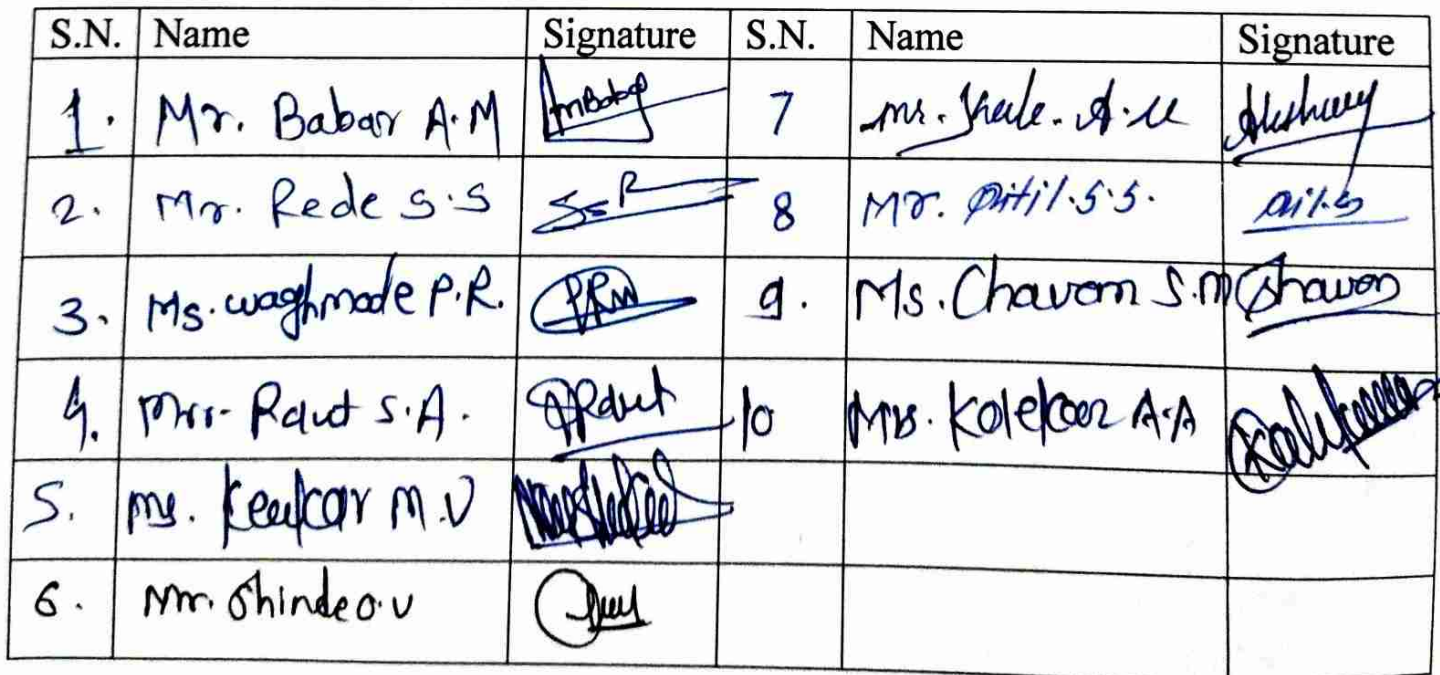 S.N. Name Signature S.N. Name Signature
1. Mr. Babar A.M AmBabar 7 mr. A.U Akshay
2. Mr. Rede S.S SSR 8 Mr. S.S.
3. Ms. waghmode P.R. PRW 9. Ms. Chavan S.M Chavan
4. Mrs. Raut S.A. Raut 10 Mrs. Kolekar A.A
5. Ms. M.V
6. Mr. Shinde O.V